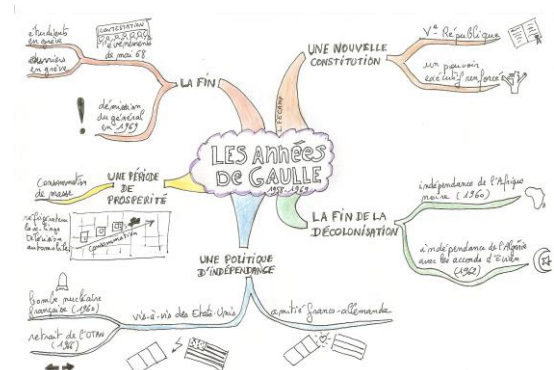 LES ANNÉES
DE GAULLE
1958-1969
UNE NOUVELLE
CONSTITUTION
Ve République
un pouvoir
exécutif renforcé
LA FIN DE LA
DÉCOLONISATION
indépendance de l'Afrique
noire (1960)
indépendance de l'Algérie
avec les accords d'Evian
(1962)
UNE POLITIQUE
D'INDÉPENDANCE
amitié franco-allemande
vis-à-vis des Etats-Unis
bombe nucléaire
française (1960)
retrait de l'OTAN
(1966)
UNE PÉRIODE
DE
PROSPERITÉ
Consommation
de masse
réfrigérateur
télévision
automobile
Consommation
LA FIN
CONTESTATION
évènements
de mai 68
étudiants
en grève
ouvriers
en grève
!
démission
du général
en 1969